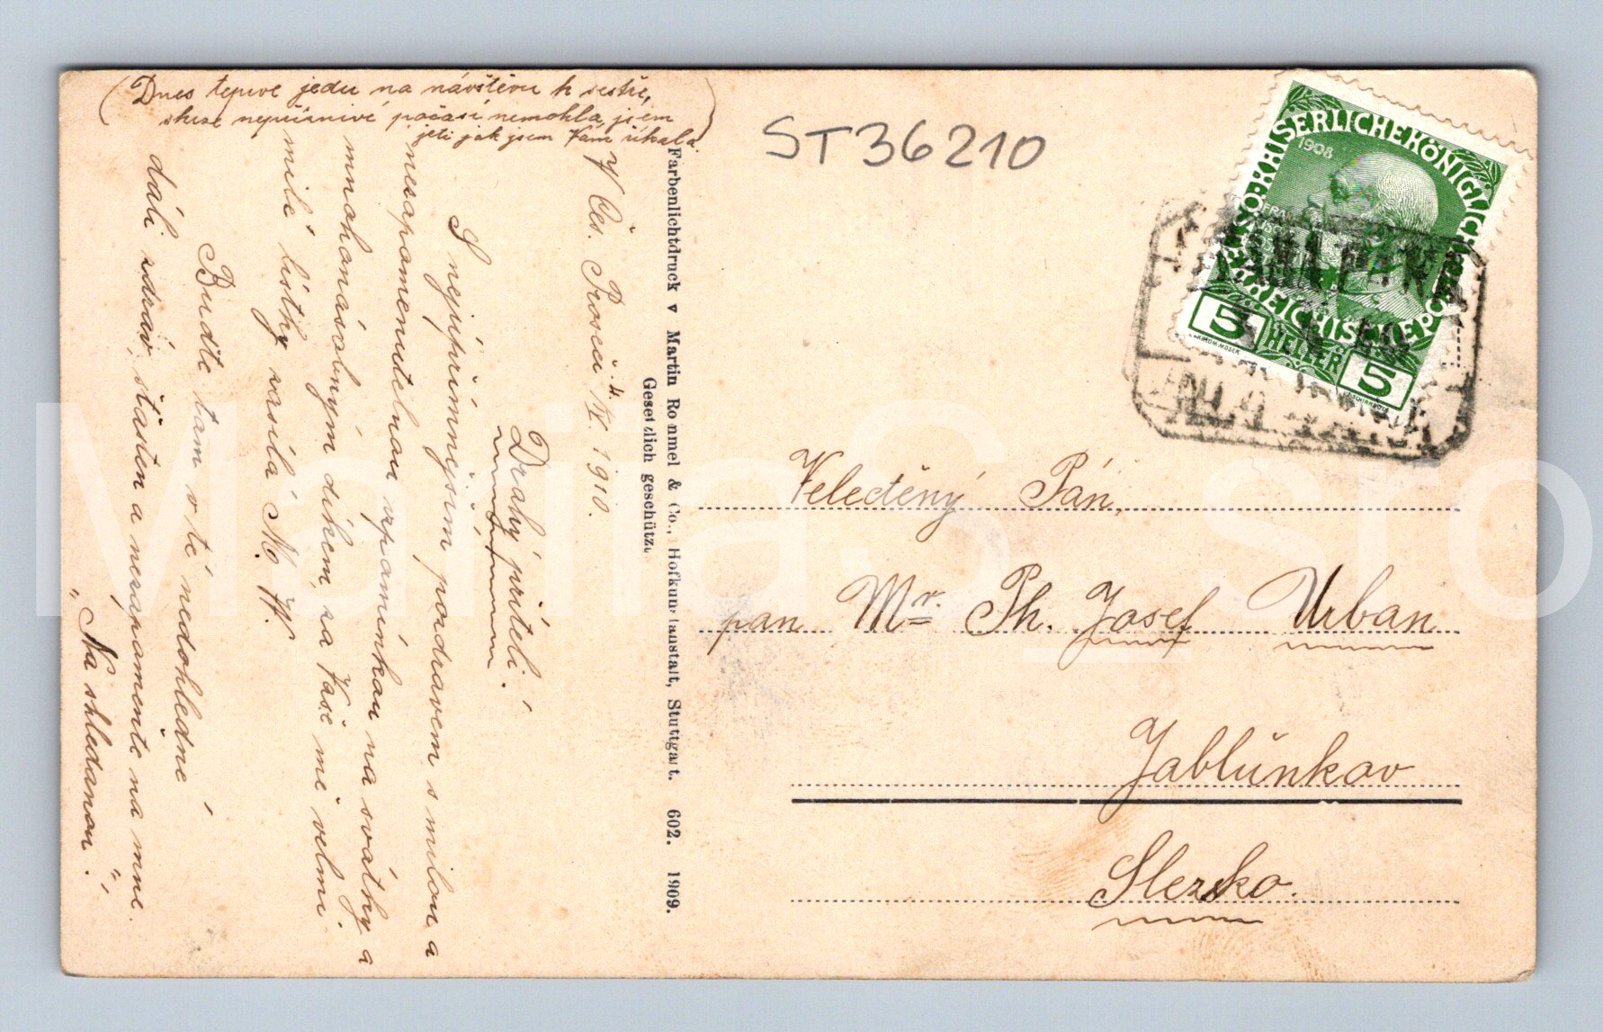 (Dnes teprve jedu na návštěvu k sestře,
skrze nepříznivé počasí nemohla jsem
jeti jak jsem Vám říkala.)
V Čes. Proseči 4/IV. 1910.
Drahý příteli!
S nejupřímnějším pozdravem s milou a
nezapomenutelnou vzpomínkou na svátky a
mnohonásobným díkem, za Vaše mě velmi
milé lístky zasílá M. H.
Buďte tam v té nedohledné
dáli zdráv, šťasten a nezapomeňte na mne.
„Na shledanou."!
Farbenlichtdruck v Martin Rommel & Co., Hofkunstanstalt, Stuttgart. 602. 1909.
Gesetzlich geschützt.
ST36210
KAISERLICHEKÖNIGLICHE
1908
5 HELLER 5
Velectěný Pán,
pan Mr. Ph. Josef Urban
Jablůnkov
Slezsko.
MaFiaS_sro